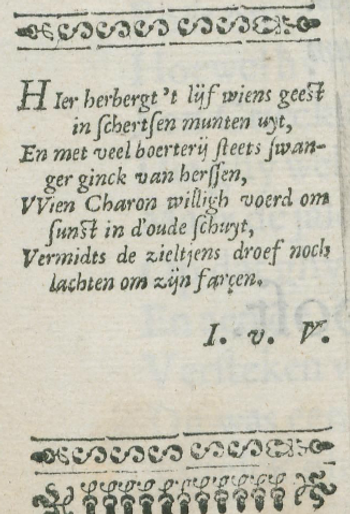 HIer herbergt 't lijf wiens geest
in schertsen munten uyt,
En met veel boerterij steets swan-
ger ginck van herssen,
VVien Charon willigh voerd om
sunst in d'oude schuyt,
Vermidts de zieltjens droef noch
lachten om zijn farçen.
I. v. V.